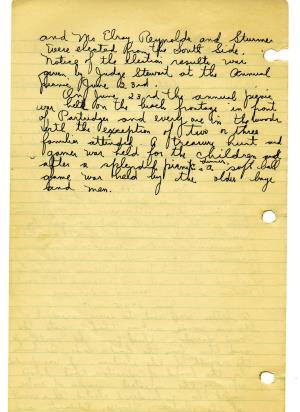 and Mr Elroy Reynolds and Sturme
were elected from the South Side.
Notice of the election results was
given by Judge Stewart at the Annual
picnic, June 23rd.
On June 23rd the annual picnic
was held on the beach frontage in front
of Partridges and every one in the
with the exception of two or three
families attended. A treasury hunt and
games was held for the children and
after a splendid picnic dinner, a soft ball
game was held by the older boys
and men.